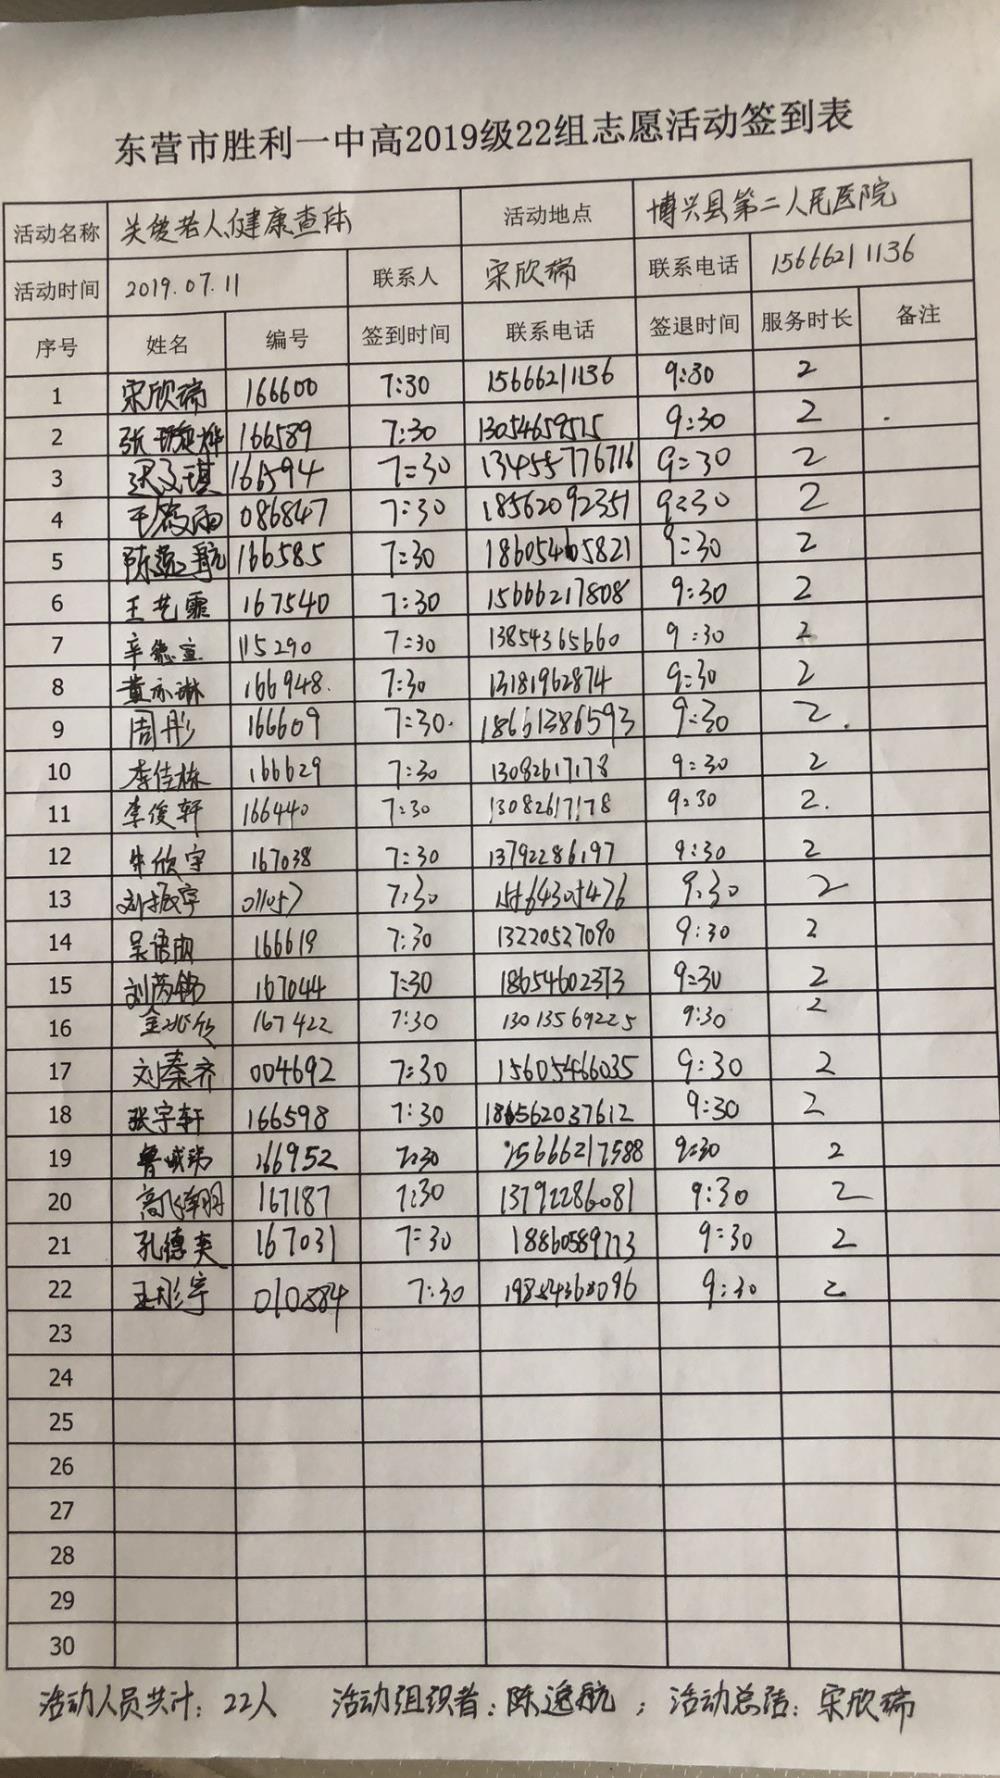 东营市胜利一中高2019级22组志愿活动签到表
活动名称 关爱老人健康查体 活动地点 博兴县第二人民医院
活动时间 2019.07.11 联系人 宋欣瑞 联系电话 15666211136
序号 姓名 编号 签到时间 联系电话 签退时间 服务时长 备注
1 宋欣瑞 166600 7:30 15666211136 9:30 2
2 张 166589 7:30 13054659515 9:30 2
3 166594 7:30 13455776716 9:30 2
4 086847 7:30 18562092351 9:30 2
5 陈逸航 166585 7:30 18605465821 9:30 2
6 王艺霏 167540 7:30 15666217808 9:30 2
7 辛德宣 115290 7:30 13854365660 9:30 2
8 董亦琳 166948 7:30 13181962874 9:30 2
9 周彤 166609 7:30 18661386593 9:30 2
10 李佳栋 166629 7:30 13082617178 9:30 2
11 李俊轩 166440 7:30 13082617178 9:30 2
12 欣宇 167038 7:30 13792286197 9:30 2
13 刘振宇 7:30 15564305476 9:30 2
14 吴语 166619 7:30 13220527090 9:30 2
15 刘芮锦 167044 7:30 18654602373 9:30 2
16 金 167422 7:30 13013569225 9:30 2
17 刘秦齐 004692 7:30 15605466035 9:30 2
18 张宇轩 166598 7:30 186562037612 9:30 2
19 鲁 166952 7:30 15666217588 9:30 2
20 高 167187 7:30 13792286081 9:30 2
21 孔德奕 167031 7:30 18860589773 9:30 2
22 王彤宇 010884 7:30 9:30 2
23
24
25
26
27
28
29
30
活动人员共计：22人 活动组织者：陈逸航；活动总结：宋欣瑞